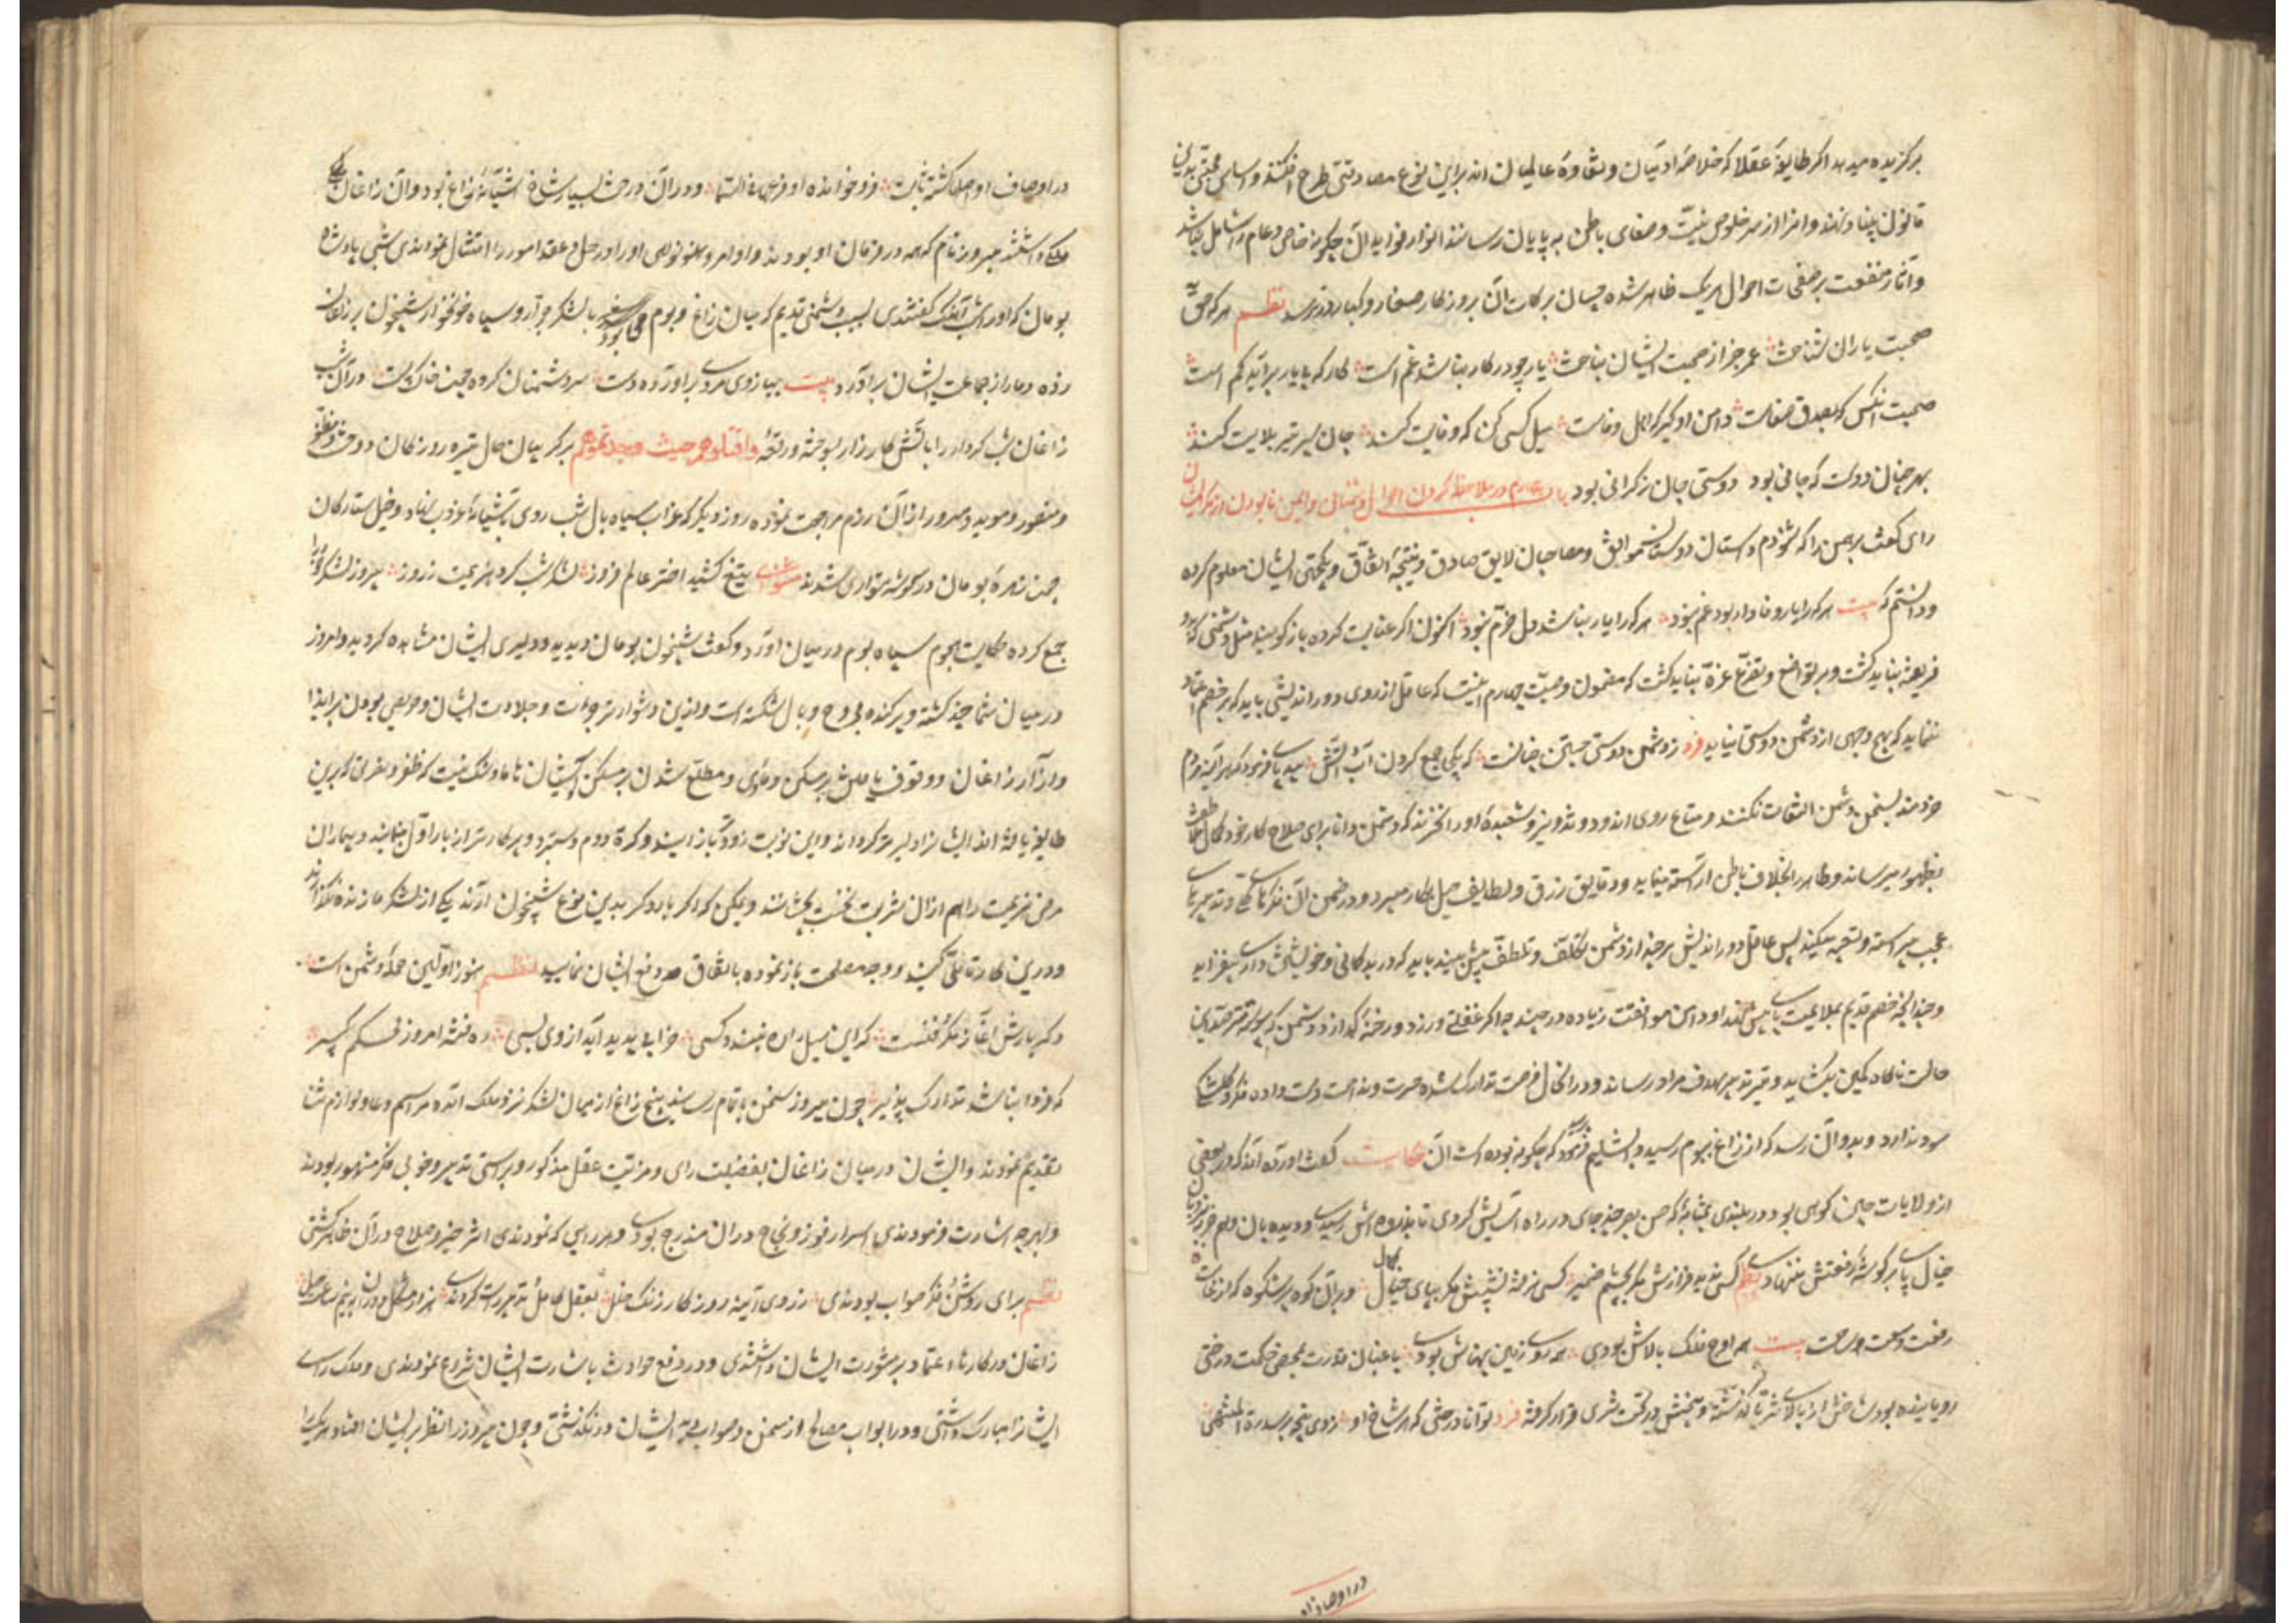 برگزیده میدهد اگر طایفهٔ عقلا که خلاصهٔ ادمیان و نقاوهٔ عالمیان اند برین نوع مصادقتی طرح افکنند و اساس محبتی بدین
قانون بنیاد نهند و انرا از سر خلوص نیت و صفای باطن به پایان رسانند انوار فواید آن چگونه خاص و عام را شامل باشد
و آثار منفعت بر صفحات احوال هریک ظاهر شده چسان برکات آن بروزگار صغار و کبار در رسد نظم هر که حق
صحبت یاران شناخت عمر جز از صحبت ایشان نباخت یار چو در کار نباشد غم است کار که با یار بر آید کم است
صحبت انکس که بصدق و صفاست دامن او گیر که اهل وفاست میل کسی کن که وفایت کند جان سپر تیر بلایت کند
بهر چنان دوست که جانی بود دوستی جان ز گرانی بود باب چهارم در ملاحظه کردن احوال دشمنان و ایمن نابودن از مکر ایشان
رای گفت برهمن را که شنودم داستان دوستان موافق و مصاحبان لایق صادق و نتیجهٔ اتفاق و یکجهتی ایشان معلوم کرده
و دانستم که بیت هر که را یار وفادار بود غم نبود هر که را یار نباشد دل خرم نبود اکنون اگر عنایت کرده باز گویید مثل دشمنی که بدو
فریفته نباید گشت و بر تواضع و تضرع غره نباید گشت که مضمون وصیت چهارم اینست که عاقل از روی دور اندیشی باید که بر خصم اعتماد
ننماید که بهیچ وجهی از دشمن دوستی نیاید فرد ز دشمن دوستی جستن چنانست که یکجا جمع کردن آب و آتش بیدپای فرمود که هر آینه مردم
خردمند بسخن دشمن التفات نکنند و متاع روی اندود و تزویر و شعبدهٔ او را نخرند که دشمن دانا برای صلاح کار خود کمال ملاطفت
بظهور میرساند و ظاهر بخلاف باطن اراسته مینماید و دقایق زرق و لطایف حیل بکار میبرد و در ضمن آن فکرهای کلی و تدبیرهای
عجیب میراسته و تعبیه میکند پس عاقل دور اندیش هر چند از دشمن تکلف و تلطف بیش بیند باید که در بدگمانی و خویشتن داری بیفزاید
و چندانکه خصم قدیم بملایمت پای پیش نهد او دامن موافقت زیاده در چیند چه اگر غفلتی ورزد و رخنهٔ گذارد دشمن که پیوسته مترصد این
حالت ناگاه کمین بگشاید و تیر تدبیر بهدف مراد رساند و در انحال فرصت تدارک شده حسرت و ندامت دست داده
سود ندارد و بدو آن رسد که از زاغ ببوم رسید دابشلیم فرمود که چگونه بوده است آن حکایت گفت آورده اند که در بعضی
از ولایات چین کوهی بود در بلندی بمثابهٔ که حس بصر چند جای در راه آسایش کردی تا بذروه اش رسیدی و دیده بان وهم جز بنردبان
خیال پای بر گوشهٔ رفعتش ننهادی نظم کس ندیده فرازش مگر بچشم ضمیر کس نرفته نشیبش مگر بپای خیال و بر آن کوه پر شکوه که از غایت
رفعت و سعت مساحت بیت همه اوج فلک بالاش بودی همه روی زمین پهناش بودی باغبان قدرت بمحض حکمت درختی
رویانیده بود شاخش از بالای ثریا گذشته و بیخش در تحت ثری قرار گرفته فرد توانا درختی که هر شاخ او زدی پنجه بر سدرة المنتهی
در اوصاف
در اوصاف او اصلها گشته ثابت فرو خوانده او فرعها فی السما و در آن درخت بسیار شاخ آشیانهٔ زاغ بود و آن زاغان
ملکی داشتند پیروز نام که همه در فرمان او بودند و اوامر و نواهی او را در حل و عقد امور را امتثال نمودندی شبی پادشاه
بومان که او را شب آهنگ گفتندی بسبب دشمنی قدیم که میان زاغ و بوم می بود با لشکر جرار و سپاه خونخوار شبیخون بر زاغان
زده دمار از جماعت ایشان بر آورد بیت ببازوی مردی بر آورده دست سر دشمنان کرده چون خاک پست در آن شب
زاغان شب کردار را باتش کارزار بسوخته و رقعهٔ واقتلوهم حیث وجدتموهم بر گریبان حال تیره روزگان دوخته و مظفر
و منصور و موید و مسرور از آن رزم مراجعت نموده روز دیگر که غراب سیاه بال شب روی باشیانهٔ غروب نهاد و خیل ستارگان
چون زمرهٔ بومان در گوشه متواری شدند مثنوی تیغ کشید اختر عالم فروز لشکر شب کرد هزیمت ز روز پیروز لشکر خود را
جمع کرده حکایت هجوم سپاه بوم در میان اورد و گفت شبیخون بومان دیدید و دلیری ایشان مشاهده کردید و امروز
در میان شما چند کشته و پرکنده مجروح و بال شکسته است و ازین دشوارتر جراءت و جلادت ایشان و حریص بودن بر ایذا
و آزار زاغان و وقوف یافتن بر مسکن و ماوی و مطلع شدن بر مسکن آشیان ما و شک نیست که ظفر و نصرتی که برین
طایفه یافته اند ایشانرا دلیرتر کرداند و این نوبت زودتر باز ایند و کرهٔ دوم دستبرد پرکارتر از بار اول نمایند و بیماران
مرض هزیمت را هم از ان شربت نخست بچشانند و یمکن که اگر بار دیگر بدین نوع شبیخون آرند یکی از لشکر ما زنده نگذارند
و درین کار تاملی کنید و وجه مصلحت باز نموده باتفاق هم دفع ایشان نمایید نظم هنوز اولین حملهٔ دشمن است
که این سیل را ره نبسته کسی خرابی پدید آید از وی بسی ره فتنه امروز محکم بگیر
که فردا نباشد تدارک پذیر چون پیروز سخن باتمام رسانید پنج زاغ از میان لشکر نزد ملک امده مراسم دعا و لوازم ثنا
تقدیم نمودند و ایشان در میان زاغان بفضیلت رای و مزیت عقل مذکور و براستی تدبیر و خوبی فکر مشهور بودند
و بهر چه اشارت فرمودندی اسرار فوز و نجاح در ان مندرج بودی و هر رایی که نمودندی اثر خیر و صلاح در آن ظاهر گشتی
نظم برای روشن و فکر صواب بودندی ز روی آینهٔ روزگار زنک خلل بعقل کامل و تدبیر راست کردندی هزار مشکل دوران
زاغان در کارها اعتماد بر مشورت ایشان داشتندی و در دفع حوادث باشارت ایشان شروع نمودندی و ملک رای
ایشانرا مبارک داشتی و در ابواب مصالح از سخن و صوابدید ایشان در نگذشتی و چون پیروز را نظر بر ایشان افتاد هر یک را